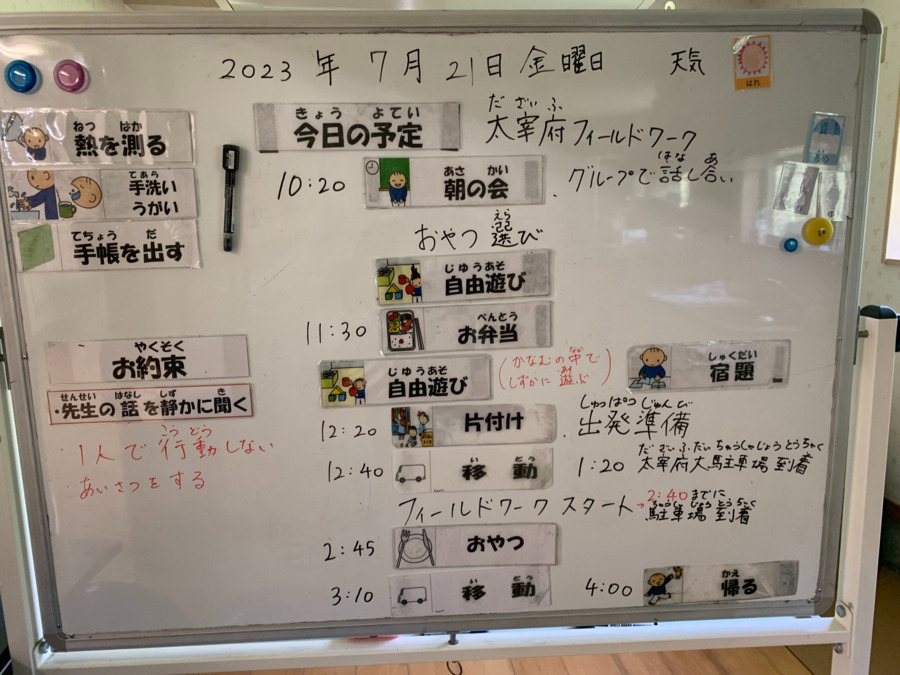 2023 年 7月 21日 金曜日 天気
はれ
きょう よてい
今日の予定
だざいふ
太宰府フィールドワーク
ねつ はか
熱を測る
てあら
手洗い
うがい
てちょう だ
手帳を出す
10:20
あさ かい
朝の会
はな あ
・グループで話し合い
えら
おやつ 選び
じゆうあそ
自由遊び
11:30
べんとう
お弁当
やくそく
お約束
せんせい はなし しず き
・先生の話を静かに聞く
こうどう
・1人で行動しない
・あいさつをする
じゆうあそ
自由遊び
なか
(かなむの中で
あそ
しずかに遊ぶ)
しゅくだい
宿題
12:20
片付け
しゅっぱつじゅんび
・出発準備
12:40
い どう
移動
だざいふだいちゅうしゃじょうとうちゃく
1:20 太宰府大駐車場到着
フィールドワーク スタート
→2:40までに
ちゅうしゃじょうとうちゃく
駐車場到着
2:45
おやつ
3:10
い どう
移動
4:00
かえ
帰る